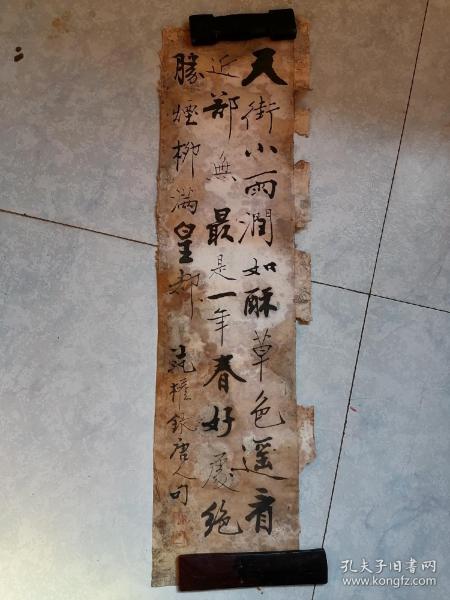 天街小雨潤如酥草色遥看
近却無最是一年春好處絶
勝煙柳滿皇都
錄唐人句
孔夫子旧书网
www.kongfz.com